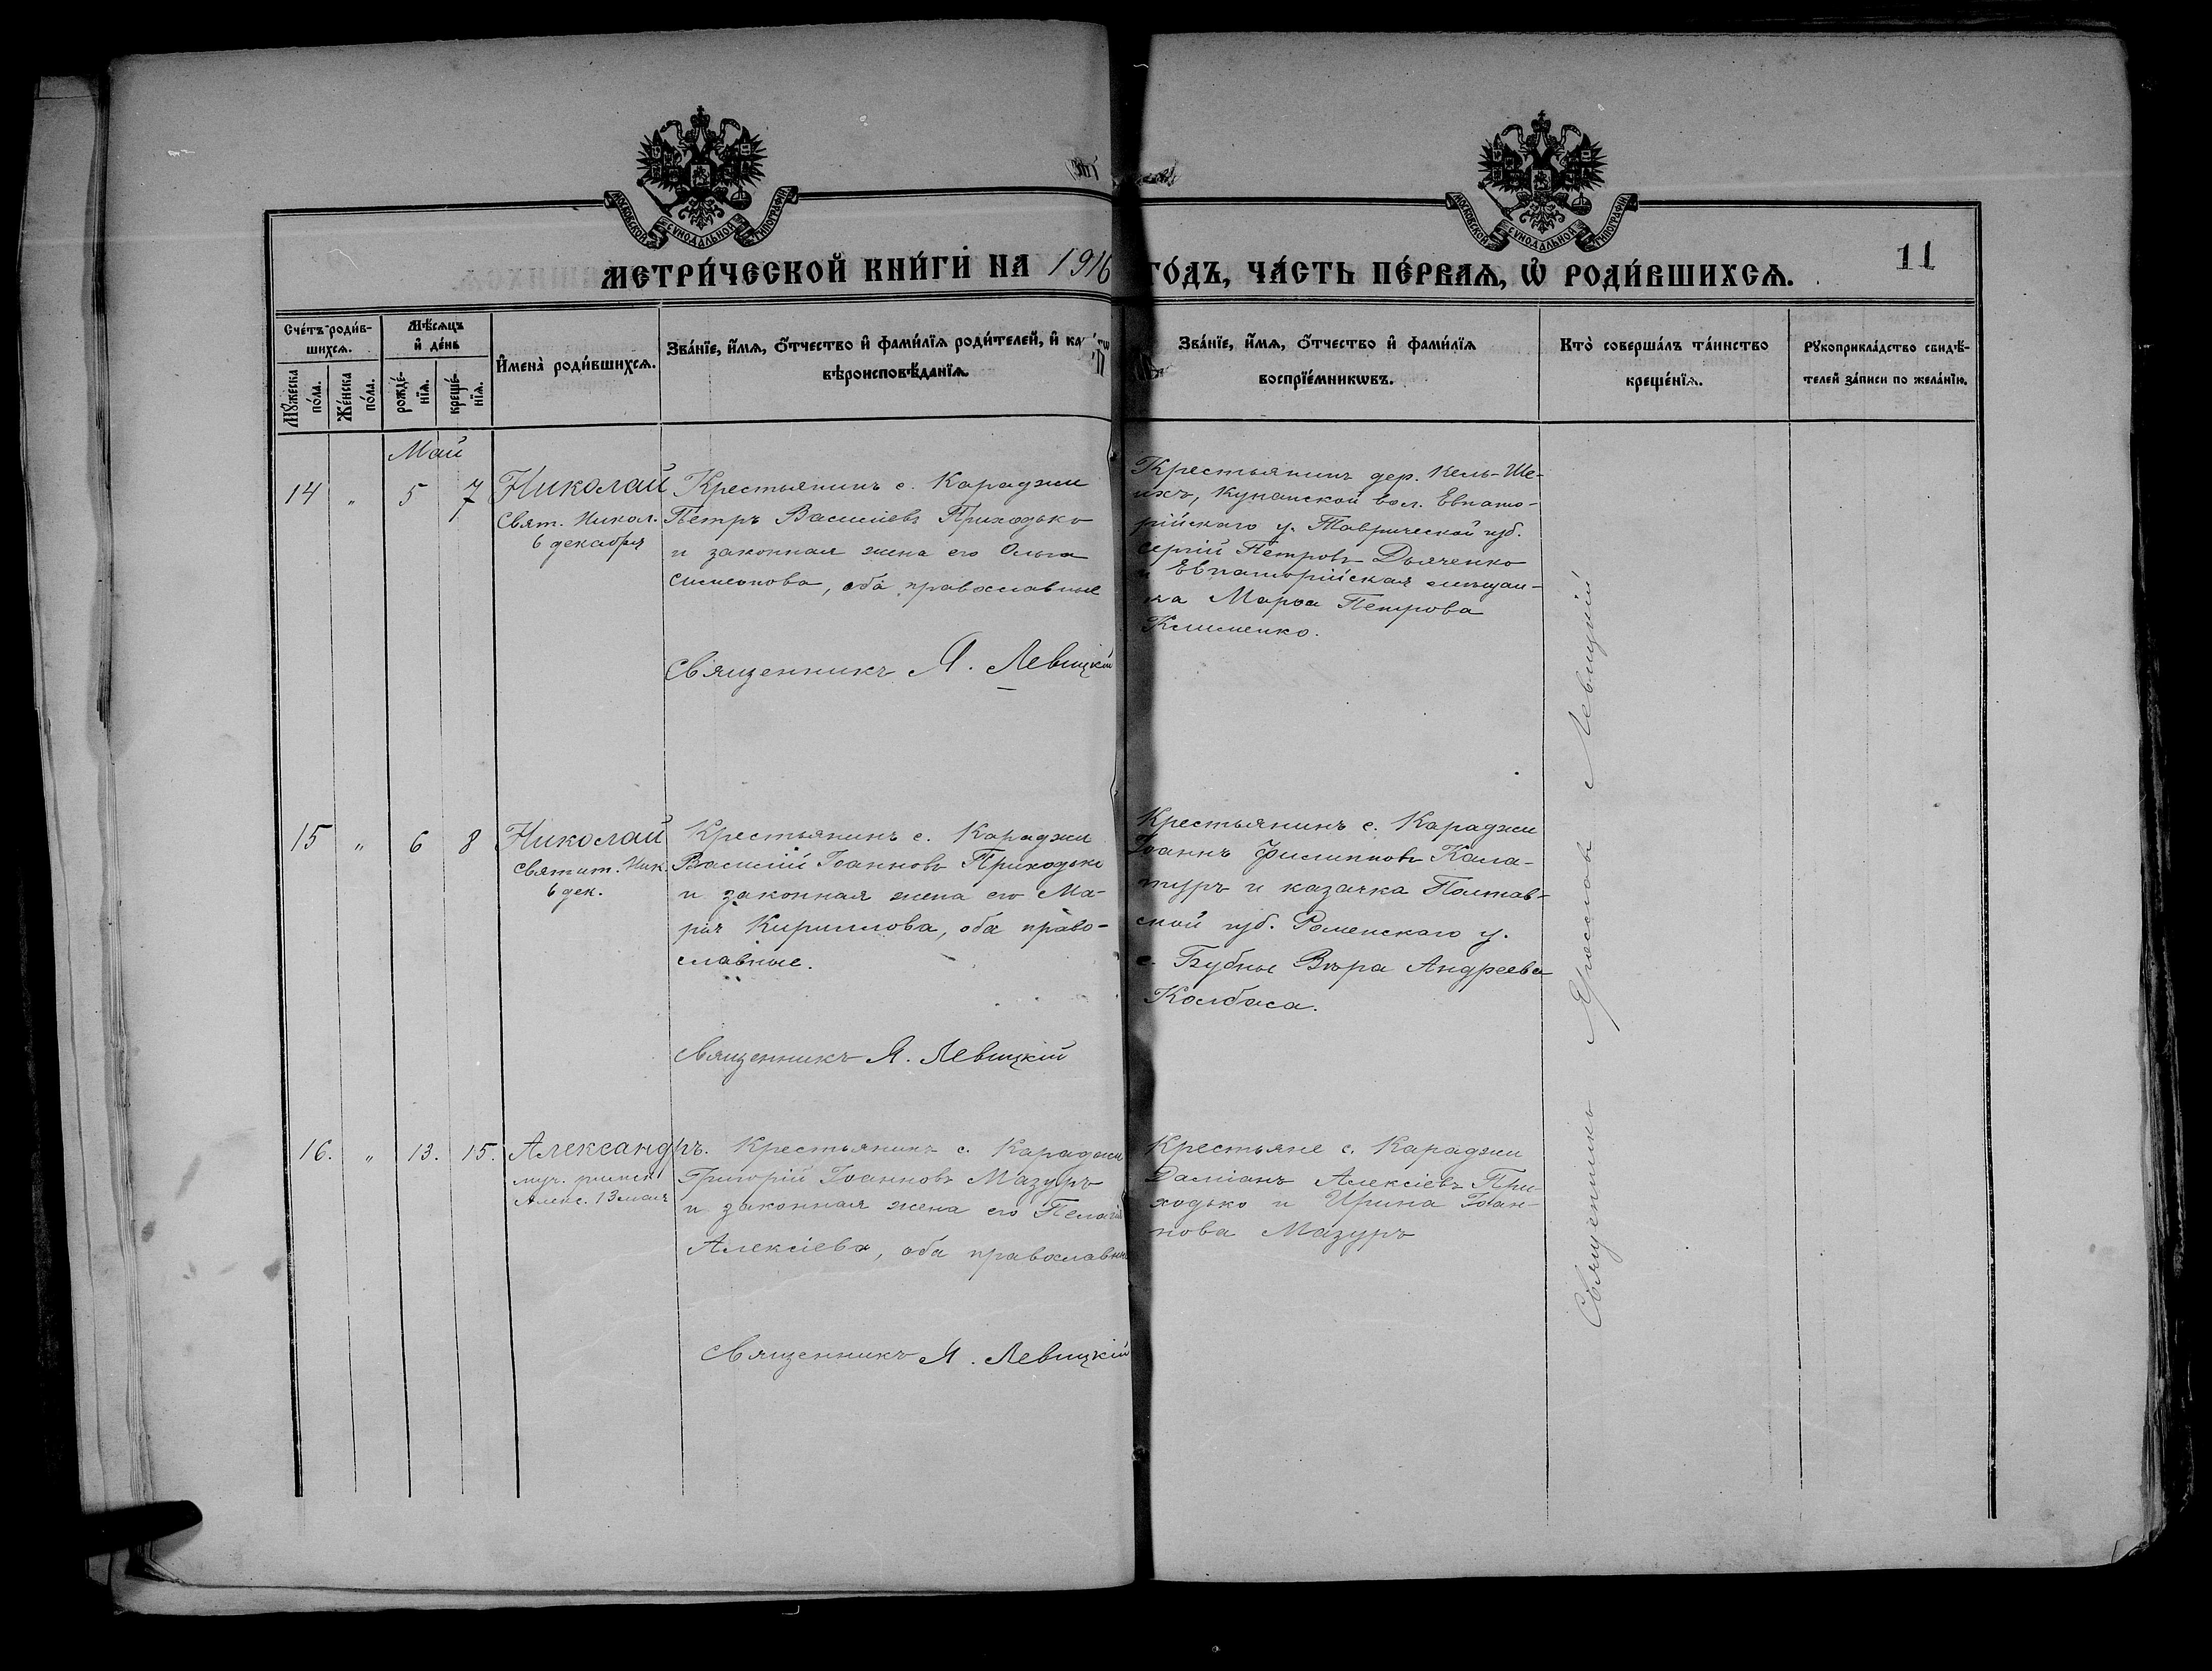 МОСКОВСКОЙ СѴНОДАЛЬНОЙ ТИПОГРАФІИ
МОСКОВСКОЙ СѴНОДАЛЬНОЙ ТИПОГРАФІИ
МЕТРИ́ЧЕСКОЙ КНИ́ГИ НА 1916 ГО́ДЪ, ЧА́СТЬ ПЕ́РВАЯ, Ѡ РОДИ́ВШИХСЯ.
11
Сче́тъ роди́в-
шихся.
Мꙋ́жеска
по́ла.
Же́нска
по́ла.
Мѣ́сяцъ
и де́нь
рожде́-
нїя.
креще́-
нїя.
Имена̀ роди́вшихся.
Зва́нїе, и́мя, о́тчество и фами́лїя роди́телей, и
вѣроисповѣ́данїя.
Зва́нїе, и́мя, о́тчество и фами́лїя
воспрїе́мникѡвъ.
Кто̀ соверша́лъ та́инство
креще́нїя.
Рꙋкоприкла́дство свидѣ́-
телей за́писи по жела́нїю.
Май
14 " 5 7
Николай
Свят. Никол.
6 декабря
Крестьянинъ с. Караджи
Петръ Василіевъ Приходько
и законная жена его Ольга
Симеонова, оба православные
Священникъ Я. Левицкій
Крестьянинъ дер. Кель-Ше-
ихъ, Кунанской вол. Евпато-
рійскаго у. Таврической губ.
Сергій Петровъ Дьяченко
и Евпаторійская мѣщан-
ка Марѳа Петрова
Клименко.
15 " 6 8
Николай
Святит. Ник.
6 дек.
Крестьянинъ с. Караджи
Василій Іоанновъ Приходько
и законная жена его Ма-
рія Кириллова, оба право-
славные.
Священникъ Я. Левицкій
Крестьянинъ с. Караджи
Іоаннъ Филипповъ Кала-
туръ и казачка Полтав-
ской губ. Роменскаго у.
с. Бубны Вѣра Андреева
Колбаса.
16. " 13. 15.
Александръ.
муч. римск
Алекс. 13 мая
Крестьянинъ с. Караджи
Григорій Іоанновъ Мазуръ
и законная жена его Пелагія
Алексіева, оба православные
Священникъ Я. Левицкій
Крестьяне с. Караджи
Даміанъ Алексіевъ При-
ходько и Ирина Іоан-
нова Мазуръ
Священникъ Ярославъ Левицкій